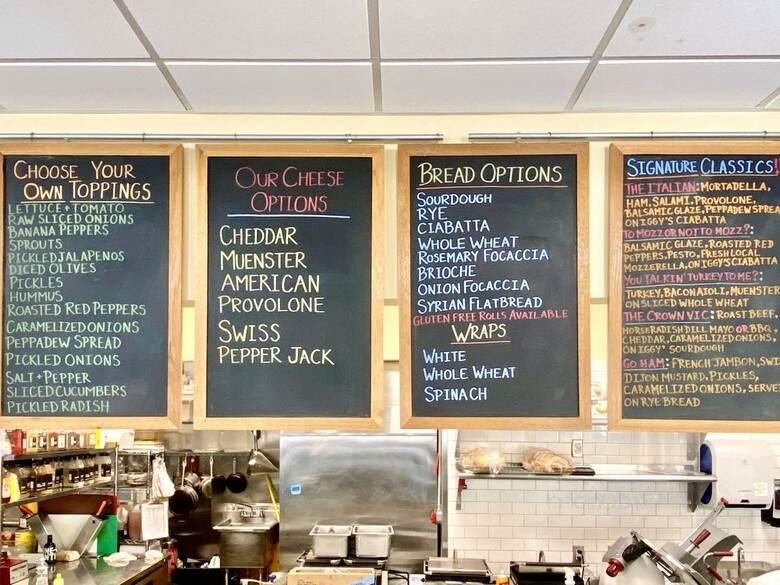 CHOOSE YOUR
OWN TOPPINGS
LETTUCE + TOMATO
RAW SLICED ONIONS
BANANA PEPPERS
SPROUTS
PICKLED JALAPENOS
DICED OLIVES
PICKLES
HUMMUS
ROASTED RED PEPPERS
CARAMELIZED ONIONS
PEPPADEW SPREAD
PICKLED ONIONS
SALT + PEPPER
SLICED CUCUMBERS
PICKLED RADISH
OUR CHEESE
OPTIONS
CHEDDAR
MUENSTER
AMERICAN
PROVOLONE
SWISS
PEPPER JACK
BREAD OPTIONS
SOURDOUGH
RYE
CIABATTA
WHOLE WHEAT
ROSEMARY FOCACCIA
BRIOCHE
ONION FOCACCIA
SYRIAN FLATBREAD
GLUTEN FREE ROLLS AVAILABLE
WRAPS
WHITE
WHOLE WHEAT
SPINACH
SIGNATURE CLASSICS!
THE ITALIAN: MORTADELLA,
HAM, SALAMI, PROVOLONE,
BALSAMIC GLAZE, PEPPADEW SPREA
ON IGGY'S CIABATTA
TO MOZZ OR NOT TO MOZZ?:
BALSAMIC GLAZE, ROASTED RED
PEPPERS, PESTO, FRESH LOCAL
MOZZERELLA, ON IGGY'S CIABATTA
YOU TALKIN TURKEY TO ME?:
TURKEY, BACON AIOLI, MUENSTER
ON SLICED WHOLE WHEAT
THE CROWN VIC: ROAST BEEF,
HORSERADISH DILL MAYO OR BBQ,
CHEDDAR, CARAMELIZED ONIONS,
ON IGGY' SOURDOUGH
GO HAM: FRENCH JAMBON, SWI
DIJON MUSTARD, PICKLES,
CARAMELIZED ONIONS, SERVE
ON RYE BREAD